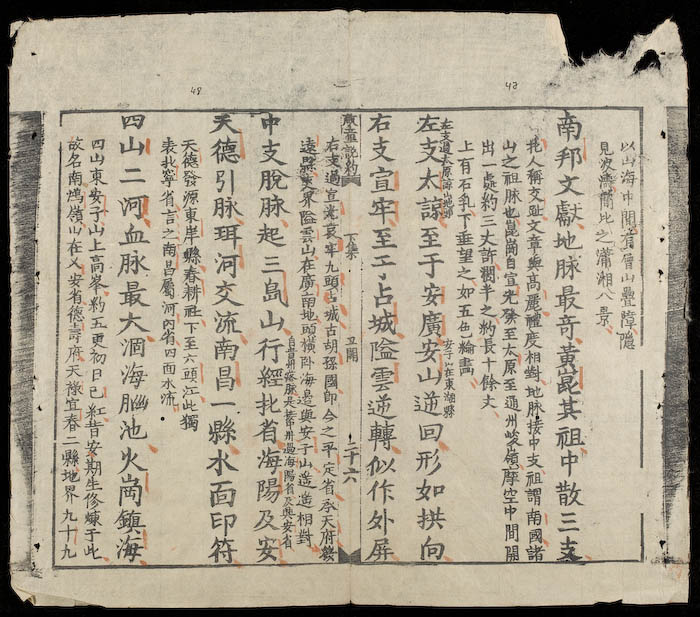 48
42
以山海中間層山疊障隱
見波濤間比之瀟湘八景
南邦文獻地脉最竒黄崑其祖中散三支
北人稱交趾文章與高麗禮度相對地脉接中支祖謂南國諸
山之祖脉也崑崗自宣光發至太原至通州峻嶺摩空中間開
出一處約三丈許濶半之約長十餘丈
上有石乳下垂望之如五色輪畵
左支過太原諒山
左支太諒至于安廣安山逆回形如拱向
安子山在東潮縣
右支宣牢至于占城隘雲逆轉似作外屏
啟童說約 下集 二十六
右支過宣光哀牢九頭占城古胡孫國即今之平定省承天府縷
遠縣夾界隘雲山在廣南地頭橫卧海邊與安子山遙遙相對
中支脫脉起三島山行經北省海陽及安
過海陽省及興安省
天德引脉珥河交流南昌一縣水面印符
天德發源東岸縣春耕社下至六頭江此獨
表北寧省言之南昌屬河內省四面水流
四山二河血脉最大涸海腦池火崗鎮海
四山東安子山上高峯約五更初日已紅昔安期生修煉于此
故名南鴻嶺山在乂安省德壽府天祿宜春二縣地界九十九